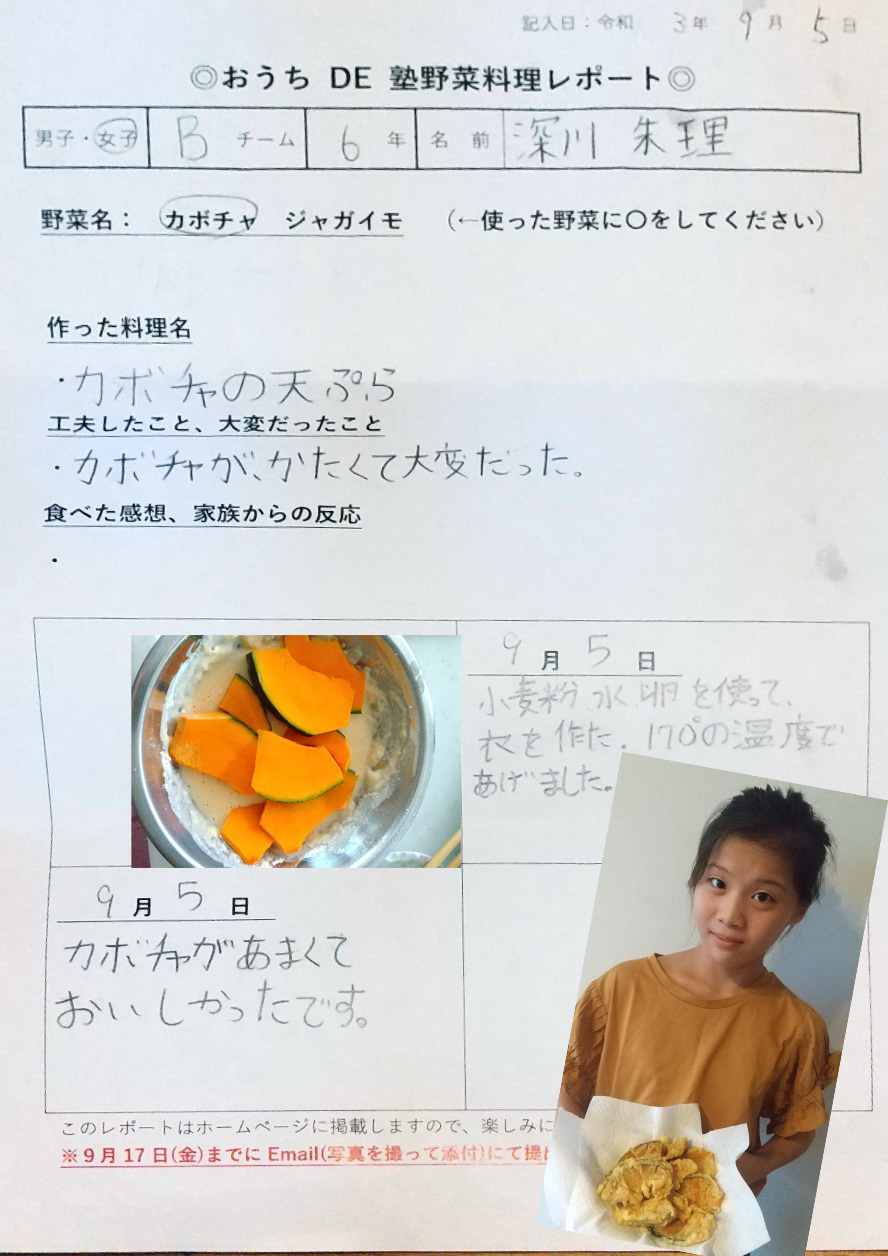 記入日：令和 3年 9月 5日
◎おうち DE 塾野菜料理レポート◎
男子・女子 B チーム 6 年 名前 深川 朱理
野菜名： カボチャ ジャガイモ （←使った野菜に〇をしてください）
作った料理名
・カボチャの天ぷら
工夫したこと、大変だったこと
・カボチャが、かたくて大変だった。
食べた感想、家族からの反応
・
9月 5日
小麦粉 水 卵 を使って、
衣を作た。170°の温度で
あげました。
9月 5日
カボチャがあまくて
おいしかったです。
このレポートはホームページに掲載しますので、楽しみに
※9月17日(金)までに Email(写真を撮って添付)にて提